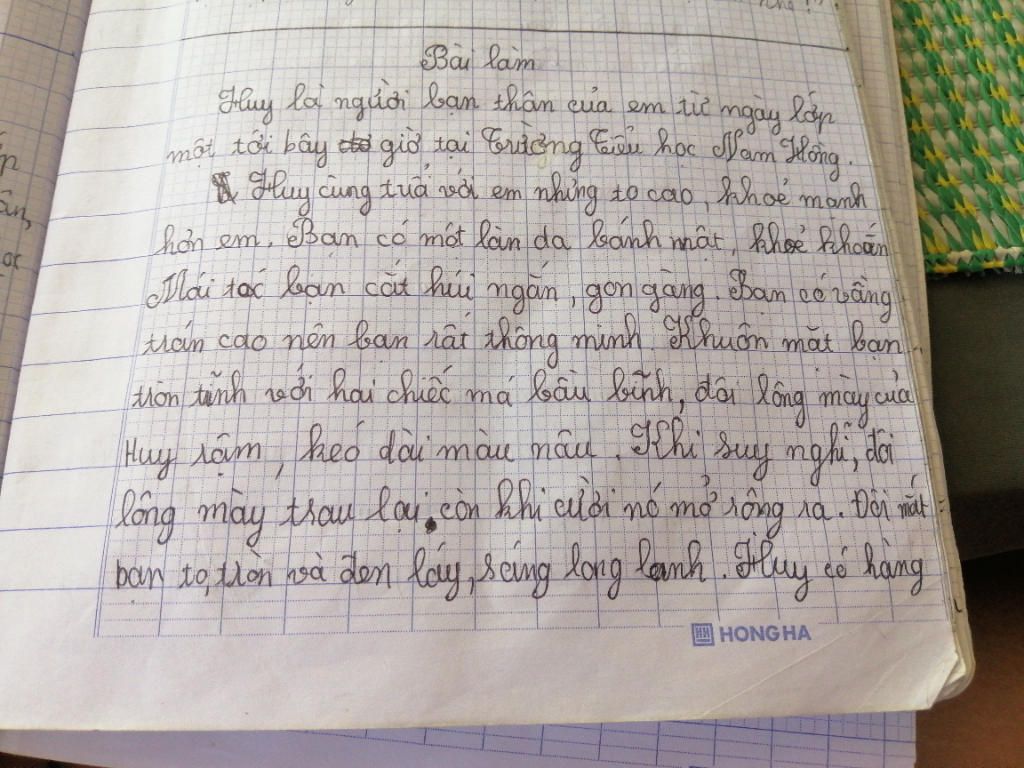 Bài làm
Huy là người bạn thân của em từ ngày lớp
một tới bây giờ, tại Trường Tiểu học Nam Hồng.
Huy cùng tuổi với em nhưng to cao, khoẻ mạnh
hơn em. Bạn có một làn da bánh mật, khoẻ khoắn
Mái tóc bạn cắt húi ngắn, gọn gàng. Bạn có vầng
trán cao nên bạn rất thông minh. Khuôn mặt bạn
tròn trĩnh với hai chiếc má bầu bĩnh, đôi lông mày của
Huy rậm, kéo dài màu nâu. Khi suy nghĩ, đôi
lông mày trau lại, còn khi cười nó mở rộng ra. Đôi mắt
bạn to, tròn và đen láy, sáng long lanh. Huy có hàng
HONG HA